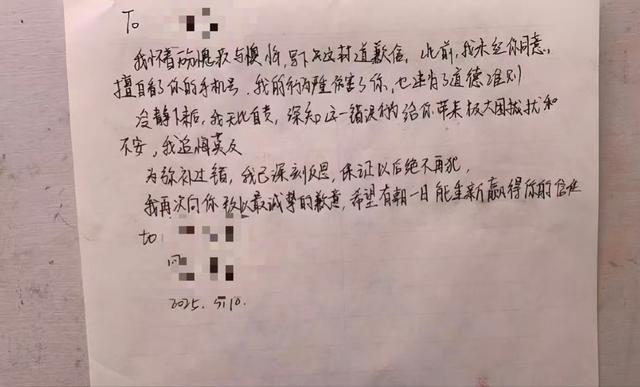 To
我怀着万分愧疚与懊悔,写下这封道歉信。此前,我未经你同意,
擅自看了你的手机号,我的行为严重伤害了你,也违背了道德准则
冷静下来后,我无比自责,深知这一错误行为给你带来极大困扰和
不安,我追悔莫及
为弥补过错,我已深刻反思,保证以后绝不再犯,
我再次向你致以最诚挚的歉意,希望有朝一日能重新赢得你的信任
to
2025. 5/10.